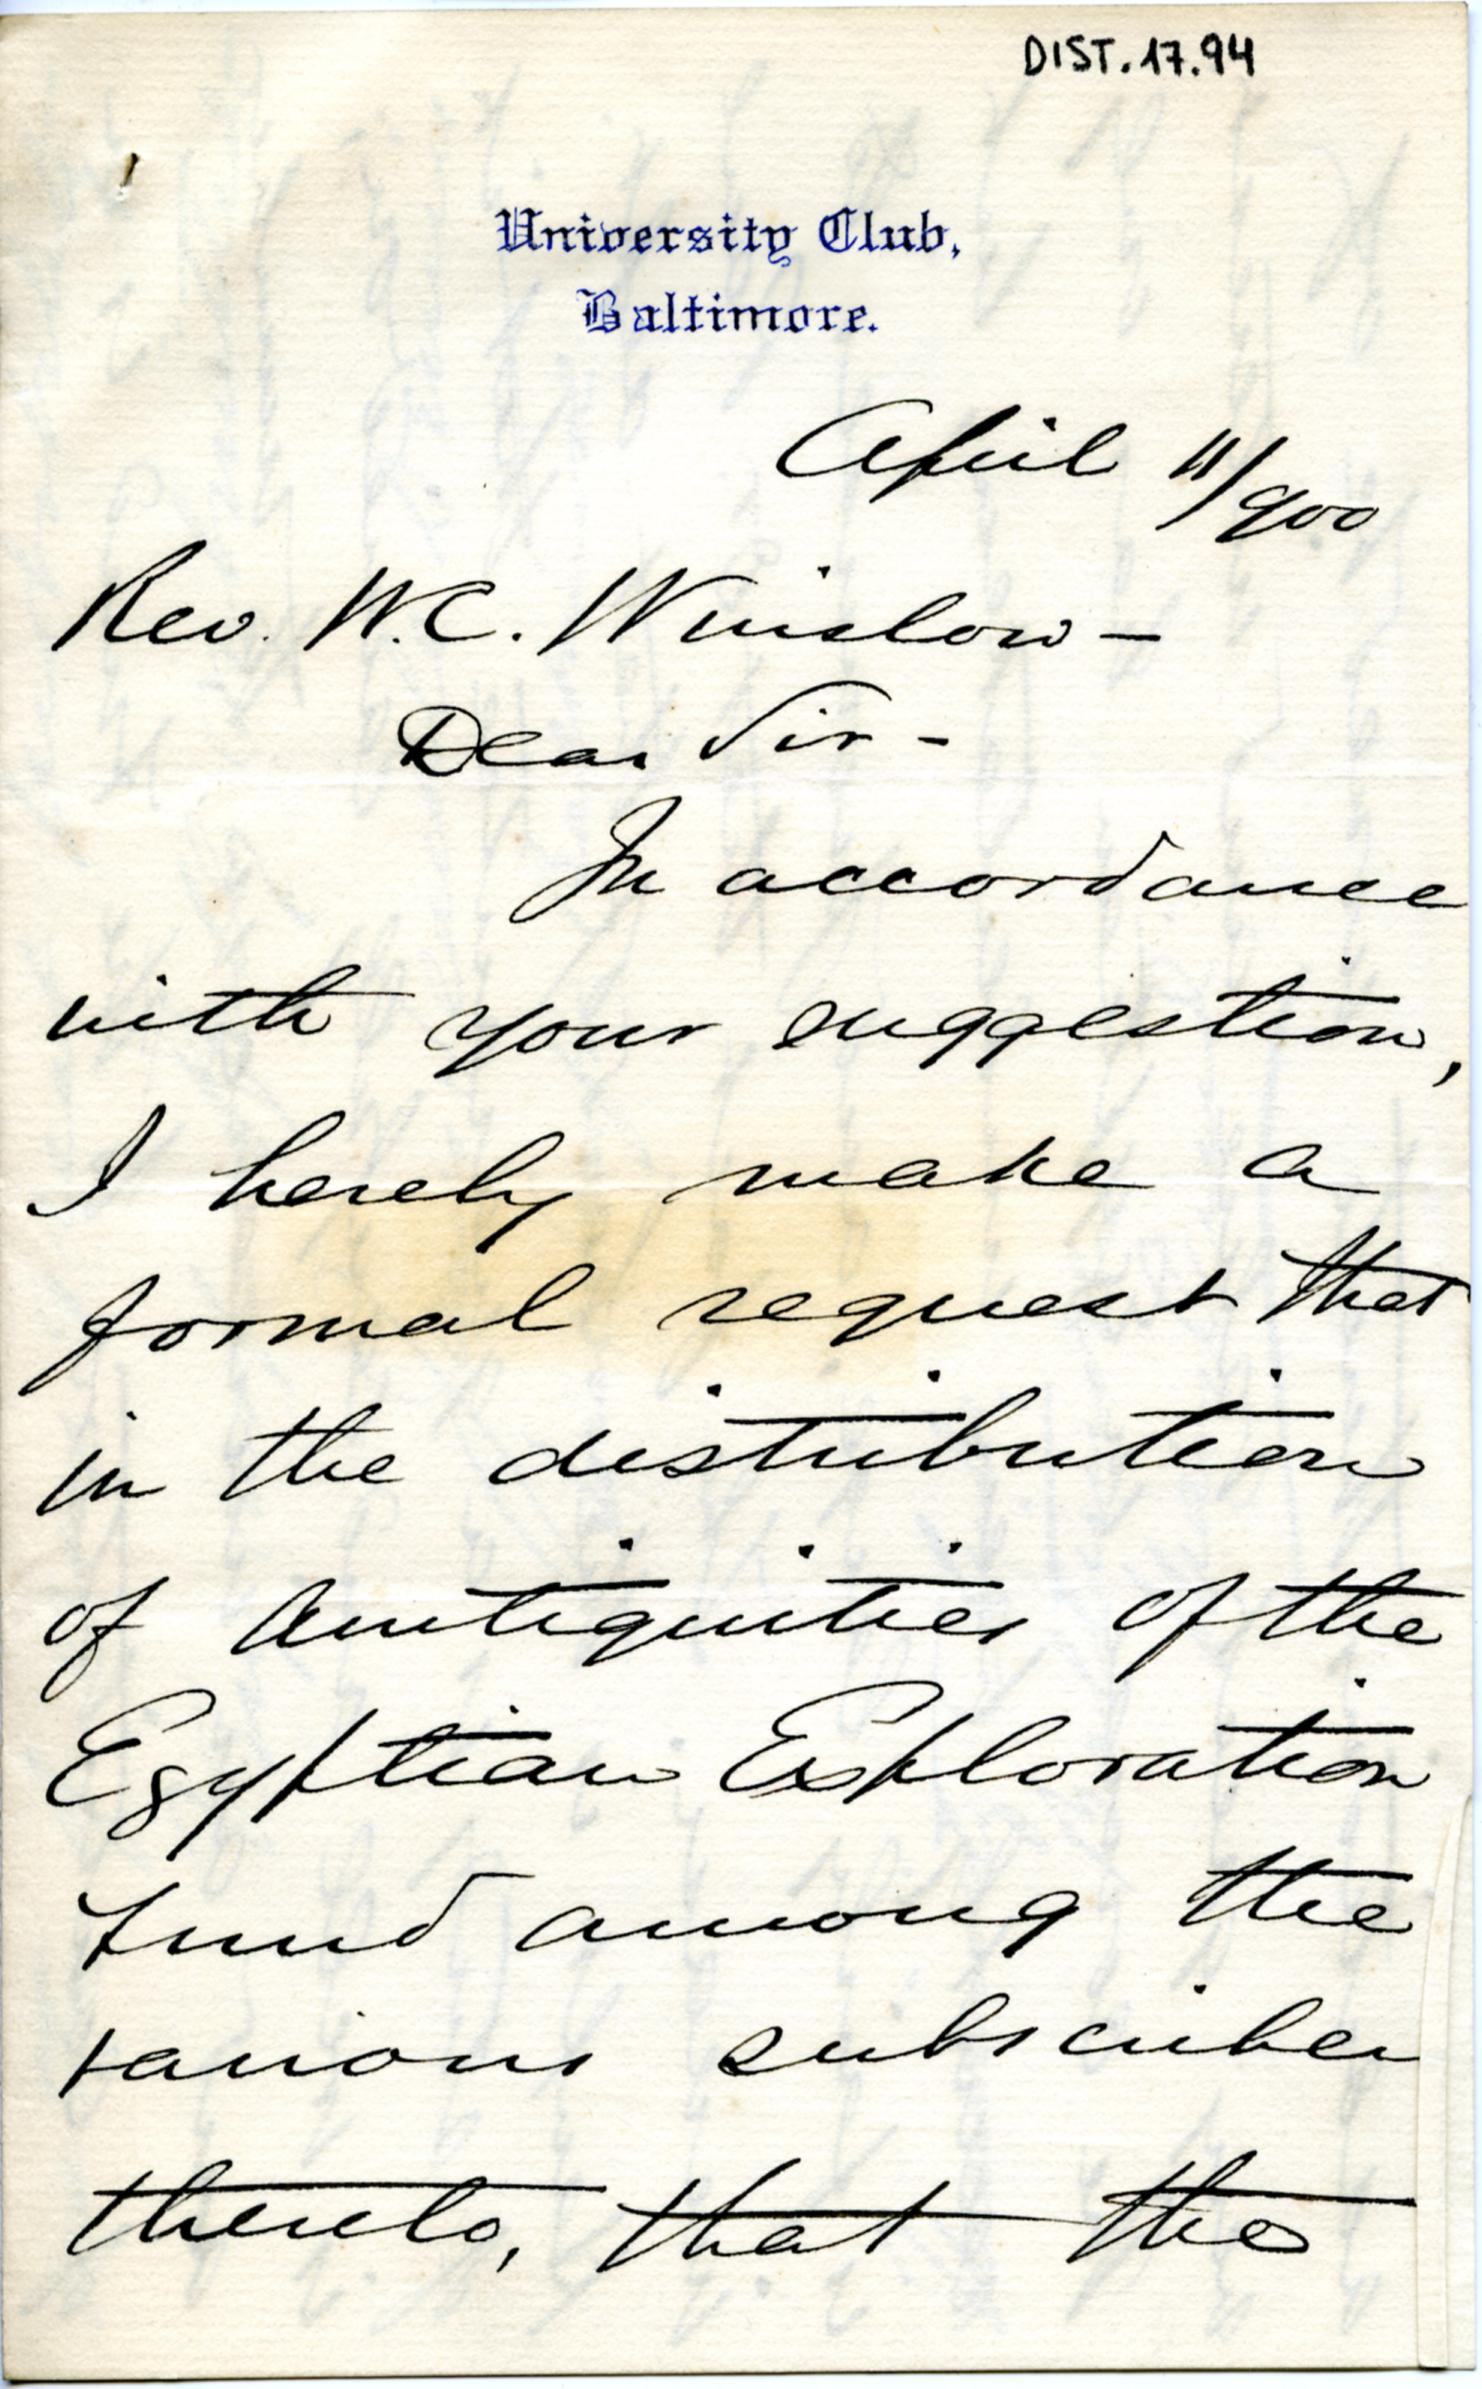 DIST.17.94
University Club,
Baltimore.
April 11/900
Rev. W.C. Winslow —
Dear Sir -
In accordance
with your suggestion,
I hereby make a
formal request that
in the distribution
of Antiquities of the
Egyptian Exploration
Fund among the
various subscriber
thereto, that the